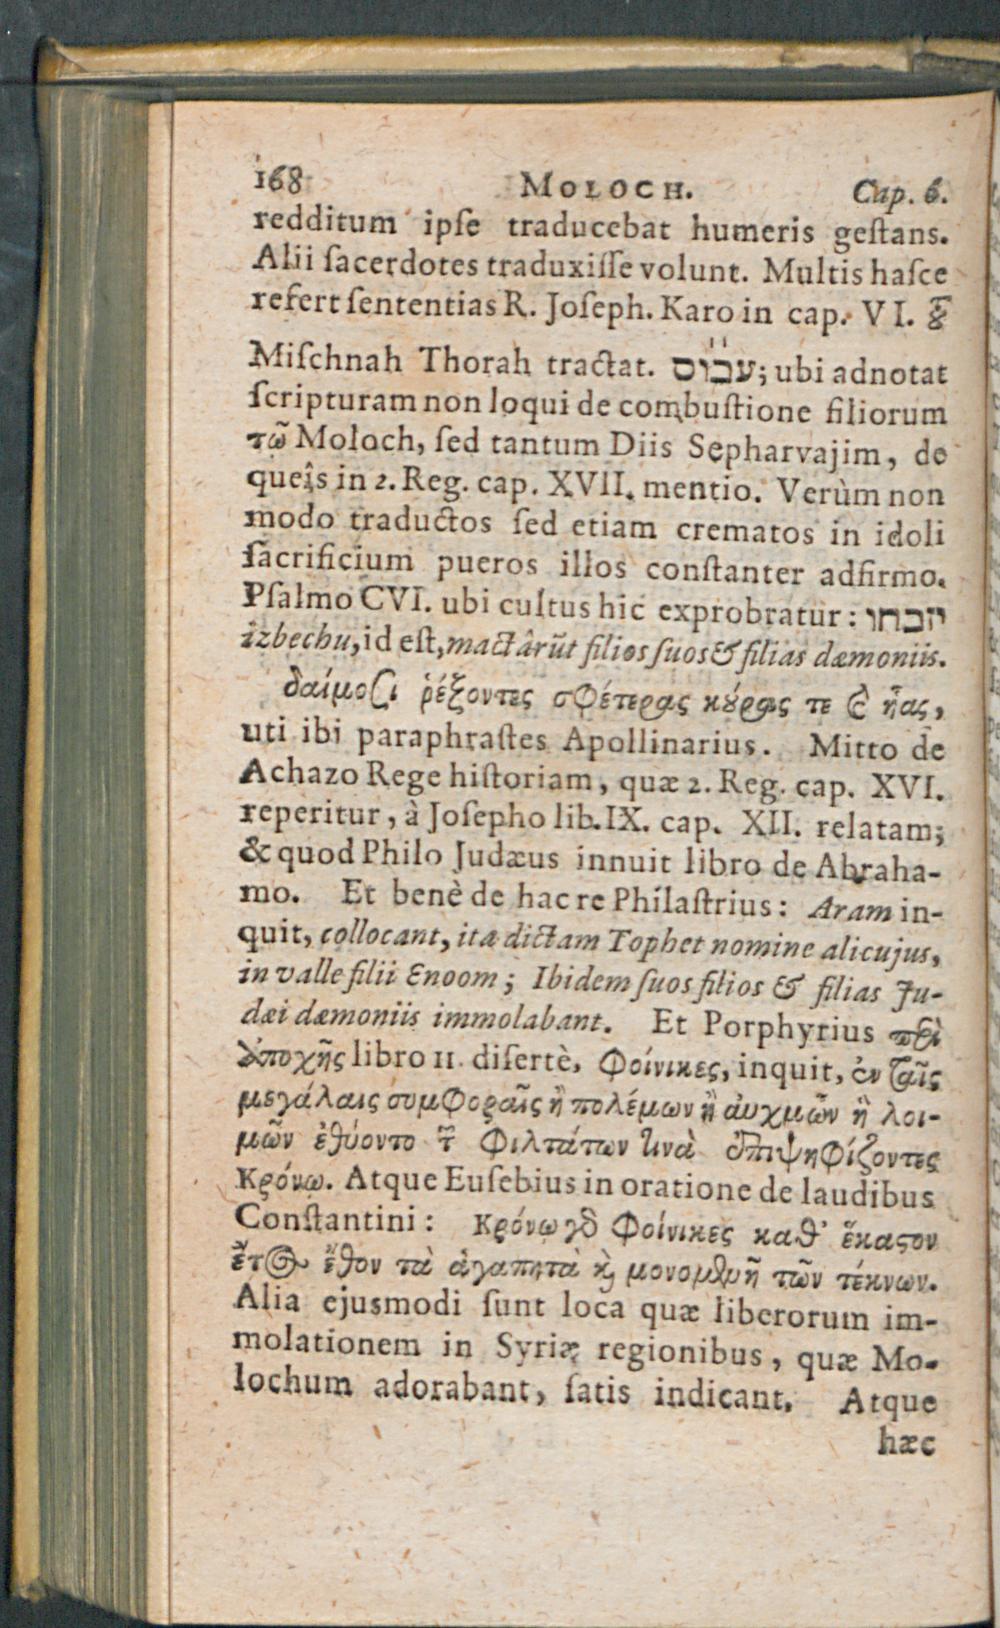 168 MOLOCH. Cap. 6.
redditum ipſe traducebat humeris geſtans.
Alii ſacerdotes traduxiſſe volunt. Multis haſce
refert ſententias R. Joſeph. Karo in cap. VI. ȣ͂
Miſchnah Thorah tractat. עכו״ם; ubi adnotat
ſcripturam non loqui de combuſtione filiorum
τῶ Moloch, ſed tantum Diis Sepharvajim, de
queîs in 2. Reg. cap. XVII. mentio. Verùm non
modo traductos ſed etiam crematos in idoli
ſacrificium pueros illos conſtanter adfirmo.
Pſalmo CVI. ubi cultus hic exprobratur: יזבחו
izbechu, id eſt, mactârũt filios ſuos & filias dæmoniis.
δαίμοσι ῥέξοντες σφέτερας κȣ́ρας τε καὶ ἧας,
uti ibi paraphraſtes Apollinarius. Mitto de
Achazo Rege hiſtoriam, quæ 2. Reg. cap. XVI.
reperitur, à Joſepho lib. IX. cap. XII. relatam;
& quod Philo Judæus innuit libro de Abraha-
mo. Et benè de hac re Philaſtrius: Aram in-
quit, collocant, ita dictam Tophet nomine alicujus,
in valle filii Enoom; Ibidem ſuos filios & filias Ju-
dæi dæmoniis immolabant. Et Porphyrius περὶ
ἀποχῆς libro II. diſertè, Φοίνικες, inquit, ἐν ταῖς
μεγάλαις συμφοραῖς ἢ πολέμων ἢ αὐχμῶν ἢ λοι-
μῶν ἐθύοντο τ͂ φιλτάτων τινὰ ἐπιψηφίζοντες
Κρόνω. Atque Euſebius in oratione de laudibus
Conſtantini: Κρόνω γὸ Φοίνικες καθ᾽ ἕκαςον
ἔτος ἔθυον τὰ ἀγαπητὰ κ̀ μονογενῆ τῶν τέκνων.
Alia ejusmodi ſunt loca quæ liberorum im-
molationem in Syriæ regionibus, quæ Mo-
lochum adorabant, ſatis indicant. Atque
hæc